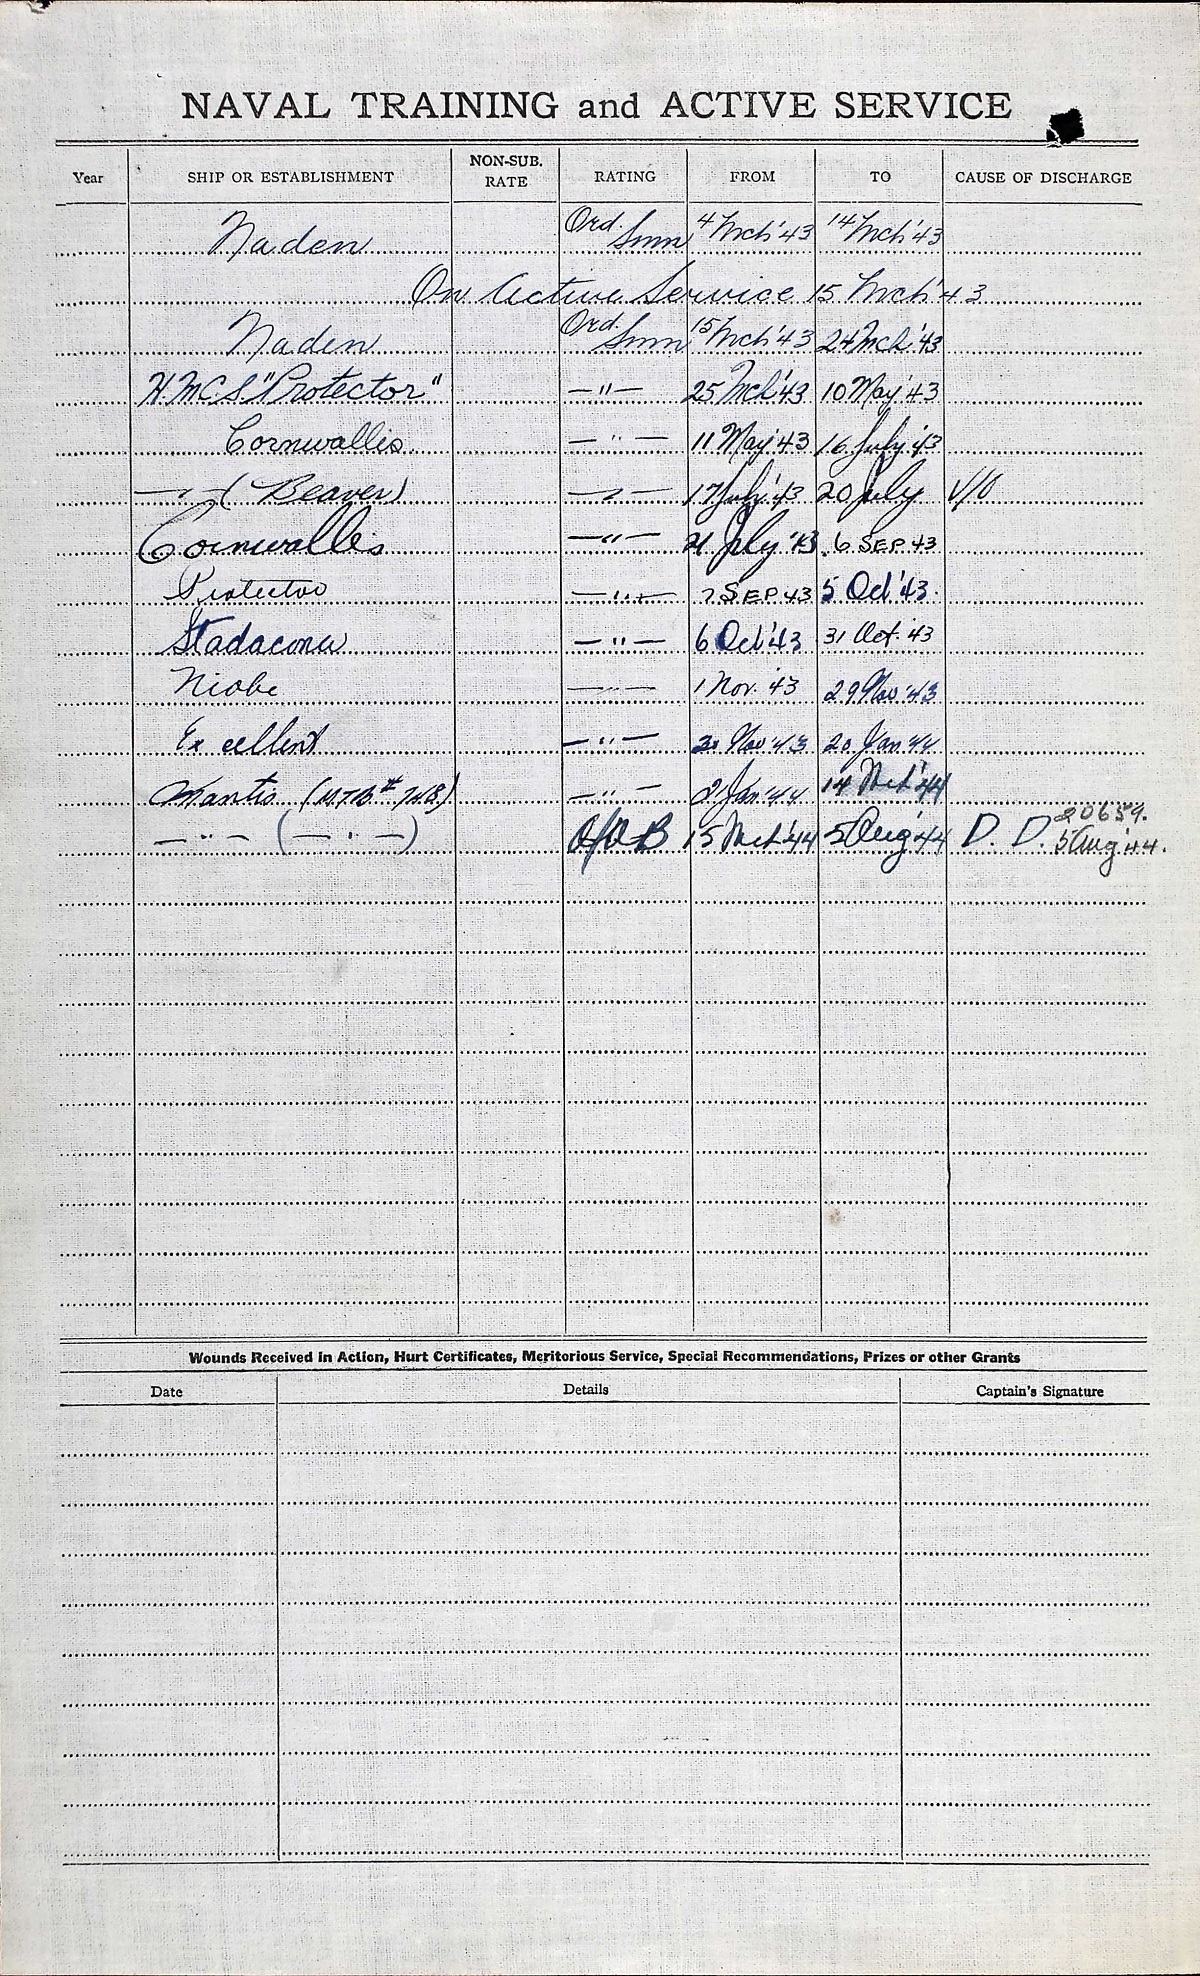 NAVAL TRAINING and ACTIVE SERVICE
Year SHIP OR ESTABLISHMENT NON-SUB. RATE RATING FROM TO CAUSE OF DISCHARGE
Naden Ord. Smn 4 Mch '43 14 Mch '43
On Active Service 15 Mch '43
Naden Ord. Smn 15 Mch '43 24 Mch '43
H.M.C.S. "Protector" —"— 25 Mch '43 10 May '43
Cornwallis —"— 11 May '43 16 July '43
—"— (Beaver) —"— 17 July '43 20 July V/O
Cornwallis —"— 21 July '43 6 SEP 43
Protector —"— 7 SEP 43 5 Oct '43.
Stadacona —"— 6 Oct '43 31 Oct. '43
Niobe —"— 1 Nov. '43 29 Nov '43
Excellent —"— 30 Nov '43 20 Jan '44
Mantis (M.T.B # 748) —"— 21 Jan '44 14 Mch '44
—"— (—"—) 15 Mch '44 5 Aug '44 D. D. 20659. 5 Aug '44.
Wounds Received in Action, Hurt Certificates, Meritorious Service, Special Recommendations, Prizes or other Grants
Date Details Captain's Signature